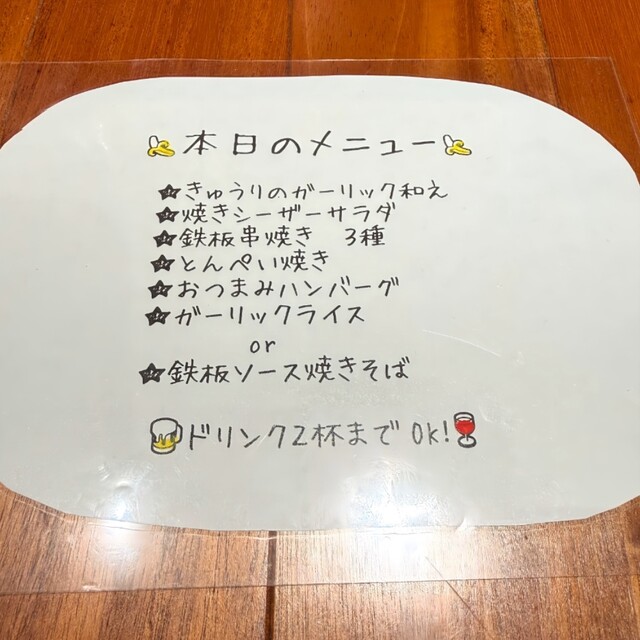 本日のメニュー
★きゅうりのガーリック和え
★焼きシーザーサラダ
★鉄板串焼き 3種
★とんぺい焼き
★おつまみハンバーグ
★ガーリックライス
or
★鉄板ソース焼きそば
ドリンク2杯まで Ok!